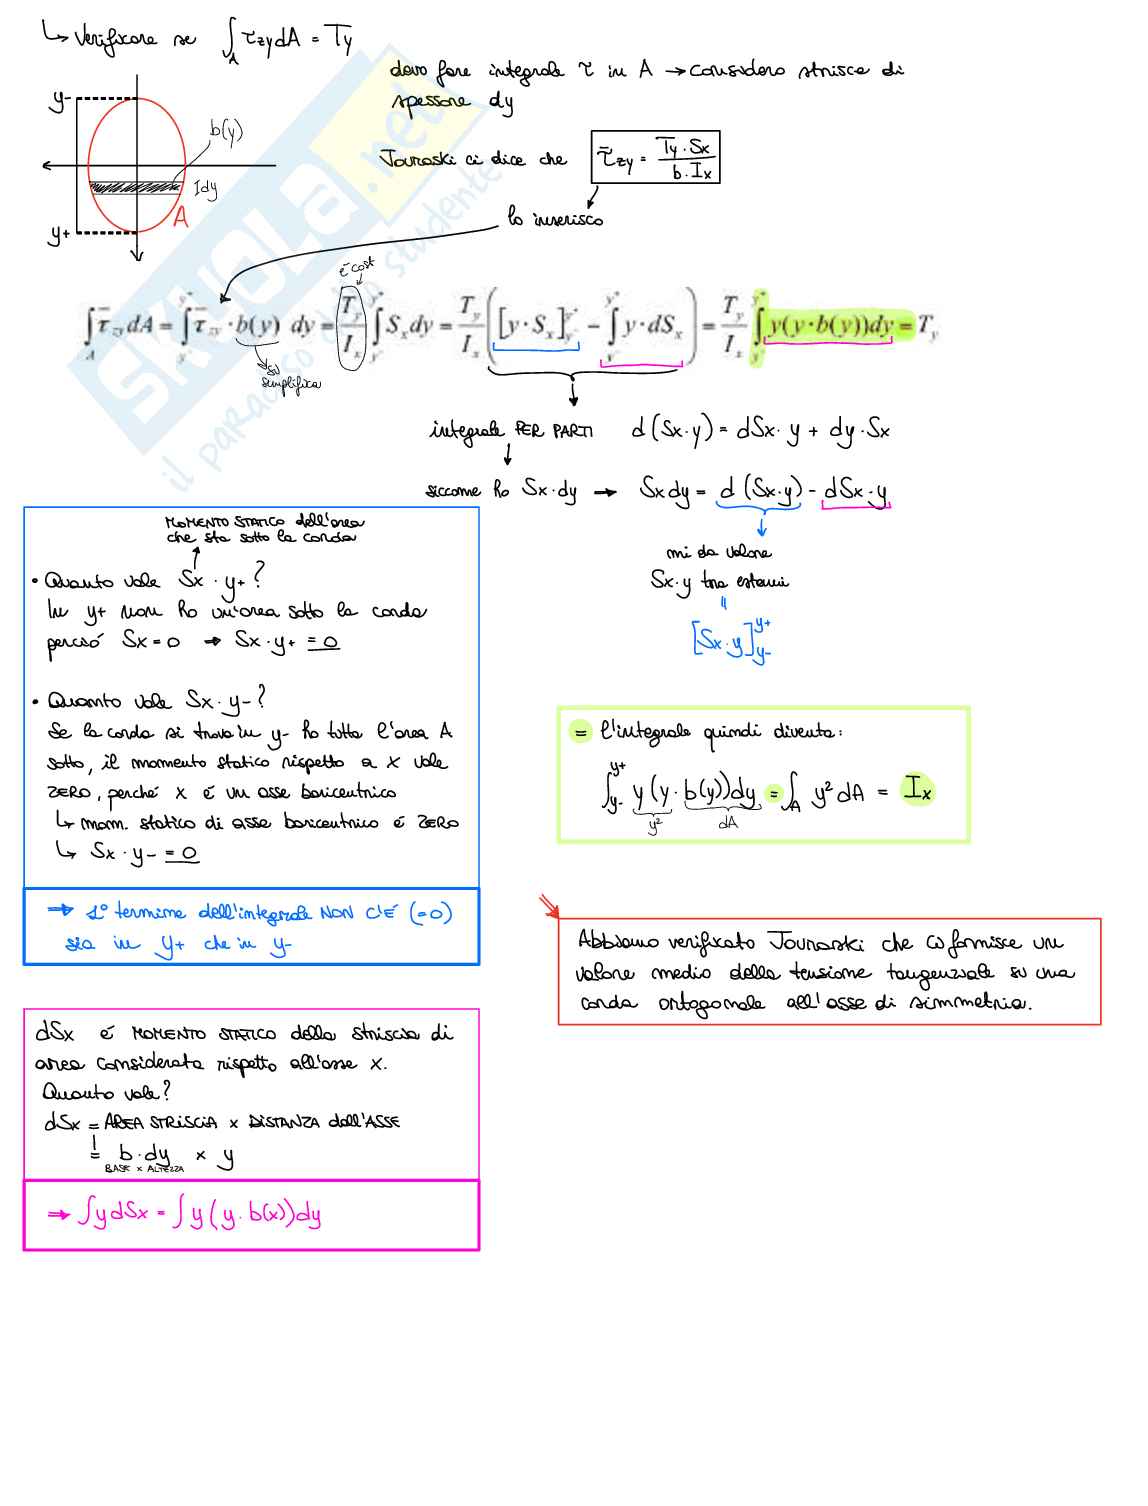 ↳ Verificare se ∫_A τzy dA = Ty
devo fare integrale τ in A → considero strisce di
spessore dy
y-
b(y)
I dy
A
y+
Jourawski ci dice che τ̄zy = Ty · Sx / b · Ix
lo inserisco
è cost
∫_A τ̄zy dA = ∫_{y-}^{y+} τ̄zy · b(y) dy = Ty/Ix ∫_{y-}^{y+} Sx dy = Ty/Ix ( [y · Sx]_{y-}^{y+} - ∫_{y-}^{y+} y · dSx ) = Ty/Ix ∫_{y-}^{y+} y(y · b(y))dy = Ty
si
semplifica
integrale PER PARTI d(Sx·y) = dSx · y + dy · Sx
siccome ho Sx · dy → Sx dy = d(Sx·y) - dSx · y
mi da valore
Sx · y tra estremi
=
[Sx · y]_{y-}^{y+}
MOMENTO STATICO dell'area
che sta sotto la corda
• Quanto vale Sx · y+ ?
In y+ non ho un'area sotto la corda
perciò Sx = 0 → Sx · y+ = 0
• Quanto vale Sx · y- ?
Se la corda si trova in y- ho tutta l'area A
sotto, il momento statico rispetto a x vale
ZERO, perché x é un asse baricentrico
↳ mom. statico di asse baricentrico é ZERO
↳ Sx · y- = 0
⇒ 1° termine dell'integrale NON C'É (=0)
sia in y+ che in y-
= l'integrale quindi diventa:
∫_{y-}^{y+} y(y · b(y))dy = ∫_A y² dA = Ix
y² dA
Abbiamo verificato Jourawski che ci fornisce un
valore medio della tensione tangenziale su una
corda ortogonale all'asse di simmetria.
dSx é MOMENTO STATICO della striscia di
area considerata rispetto all'asse x.
Quanto vale?
dSx = AREA STRISCIA x DISTANZA dall'ASSE
= b · dy x y
BASE x ALTEZZA
⇒ ∫ y dSx = ∫ y(y · b(x))dy
SKUOLA.net
il paradiso dello studente